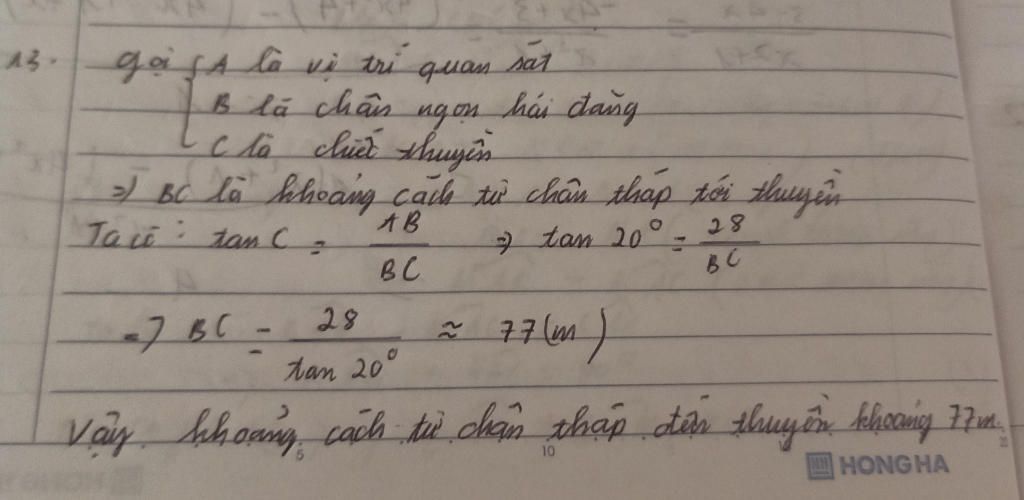 13. Gọi { A là vị trí quan sát
B là chân ngọn hải đăng
C là chiếc thuyền
=> BC là khoảng cách từ chân tháp tới thuyền
Ta có : tan C = AB/BC => tan 20° = 28/BC
=> BC = 28/tan 20° ≈ 77 (m)
Vậy khoảng cách từ chân tháp đến thuyền khoảng 77m.
5 10
HONG HA